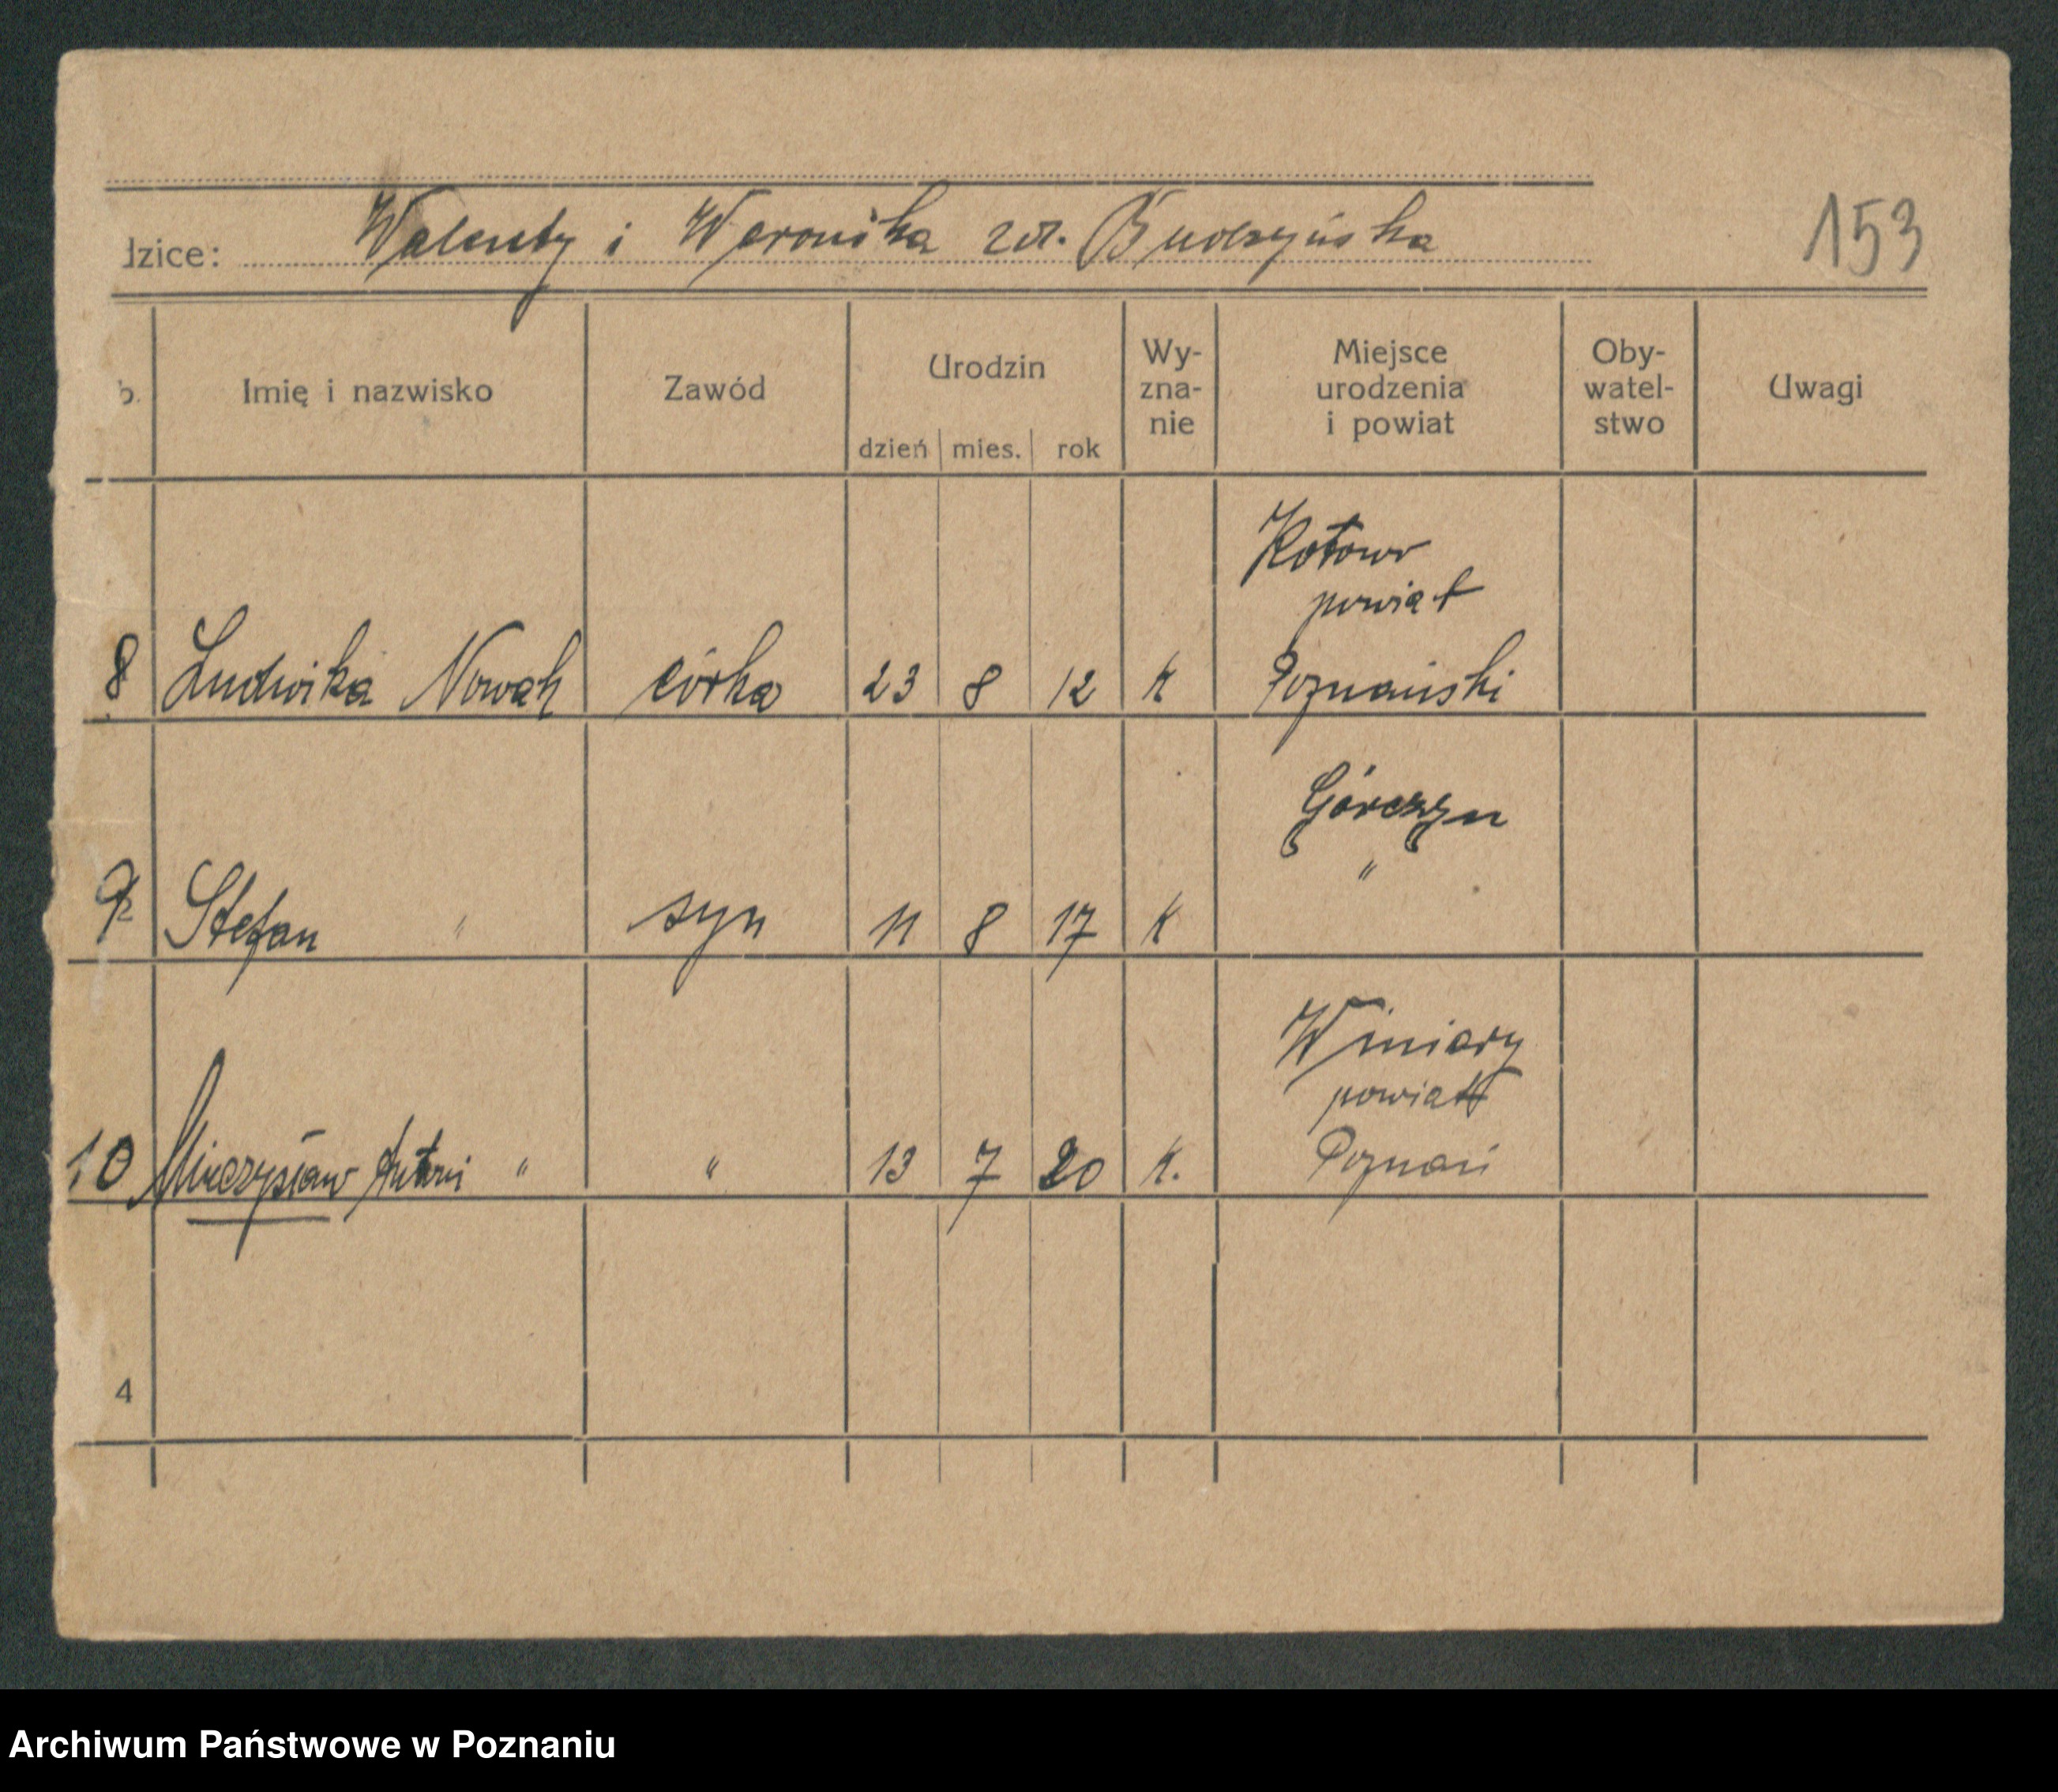 153
dzice: Walenty i Weronika zd. Budzyńska
b. Imię i nazwisko Zawód Urodzin Wy- Miejsce Oby- Uwagi
zna- urodzenia watel-
nie i powiat stwo
dzień mies. rok
Kotowo
powiat
8 Ludwika Nowak córka 23 8 12 K Poznański
Górczyn
"
9 Stefan " syn 11 8 17 K
Winiary
powiat
10 Mieczysław Antoni " " 13 7 20 K. Poznań
4
Archiwum Państwowe w Poznaniu